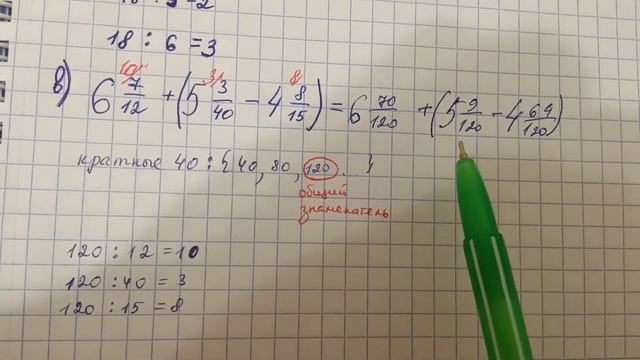 18 : 6 = 3
в) 6 7/12 + (5 3/40 - 4 8/15) = 6 70/120 + (5 9/120 - 4 64/120)
10/ 3/ 8/
кратные 40 : {40, 80, 120 ... }
общий
знаменатель
120 : 12 = 10
120 : 40 = 3
120 : 15 = 8